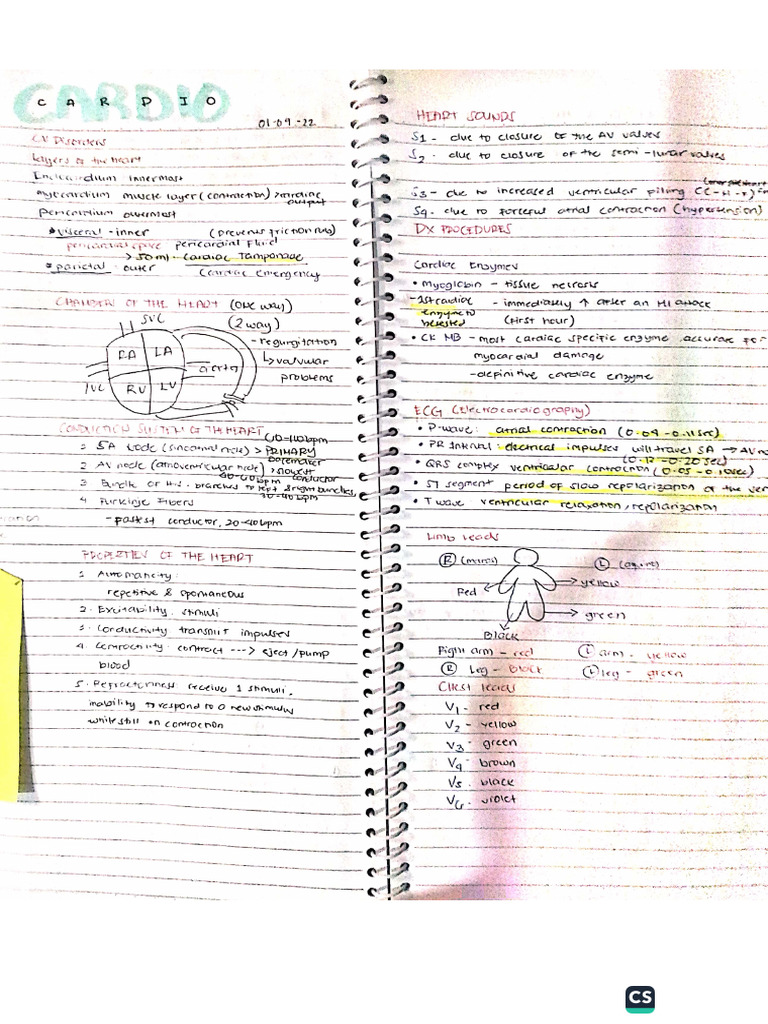 CARDIO
01-09-22
CV Disorders
Layers of the heart
Endocardium innermost
myocardium muscle layer (contraction) > cardiac
output
pericardium outermost
* visceral - inner (prevents friction rub)
pericardial space pericardial fluid
> 50 ml - cardiac Tamponade
* parietal - outer (cardiac emergency
CHAMBER OF THE HEART (one way)
SVC
(2 way)
- regurgitation
↳ valvular
problems
RA LA
RV LV
aorta
IVC
CONDUCTION SYSTEM OF THE HEART
60-100bpm
1 SA Node (sinoatrial node) > PRIMARY
pacemaker
2 AV node (atrioventricular node) > slowest
40-60bpm conductor
3 Bundle of His - branches to left & right bundles,
30-40bpm
4 Purkinje Fibers
- fastest conductor, 20-40bpm
PROPERTIES OF THE HEART
1 Automaticity:
repetitive & spontaneous
2. Excitability: stimuli
3. Conductivity transmit impulses
4 Contractility: contract ---> eject/pump
blood
5. Refractoriness receive 1 stimuli,
inability to respond to a new stimulus
while still in contraction
HEART SOUNDS
S1 - due to closure of the AV valves
S2 - due to closure of the semi-lunar valves
S3 - due to increased ventricular filling
S4 - due to forceful atrial contraction (hypertension)
DX PROCEDURES
Cardiac Enzymes
• myoglobin - tissue necrosis
- 1st cardiac - immediately ↑ after an MI attack
enzyme to
be tested (first hour)
• CK MB - most cardiac specific enzyme, accurate for
myocardial damage
- definitive cardiac enzyme
ECG (Electrocardiography)
• P-wave: atrial contraction (0.04 - 0.11sec)
• PR Interval: electrical impulses will travel SA → AV no
(0.12 - 0.20 sec)
• QRS complex ventricular contraction (0.05 - 0.10sec)
• ST segment period of slow repolarization of the ven
• T wave ventricular relaxation, repolarization
Limb leads
R L
Red
yellow
green
Black
Right arm - red L arm - yellow
R Leg - black L leg - green
Chest leads
V1 - red
V2 - yellow
V3 - green
V4 - brown
V5 - black
V6 - violet
CS